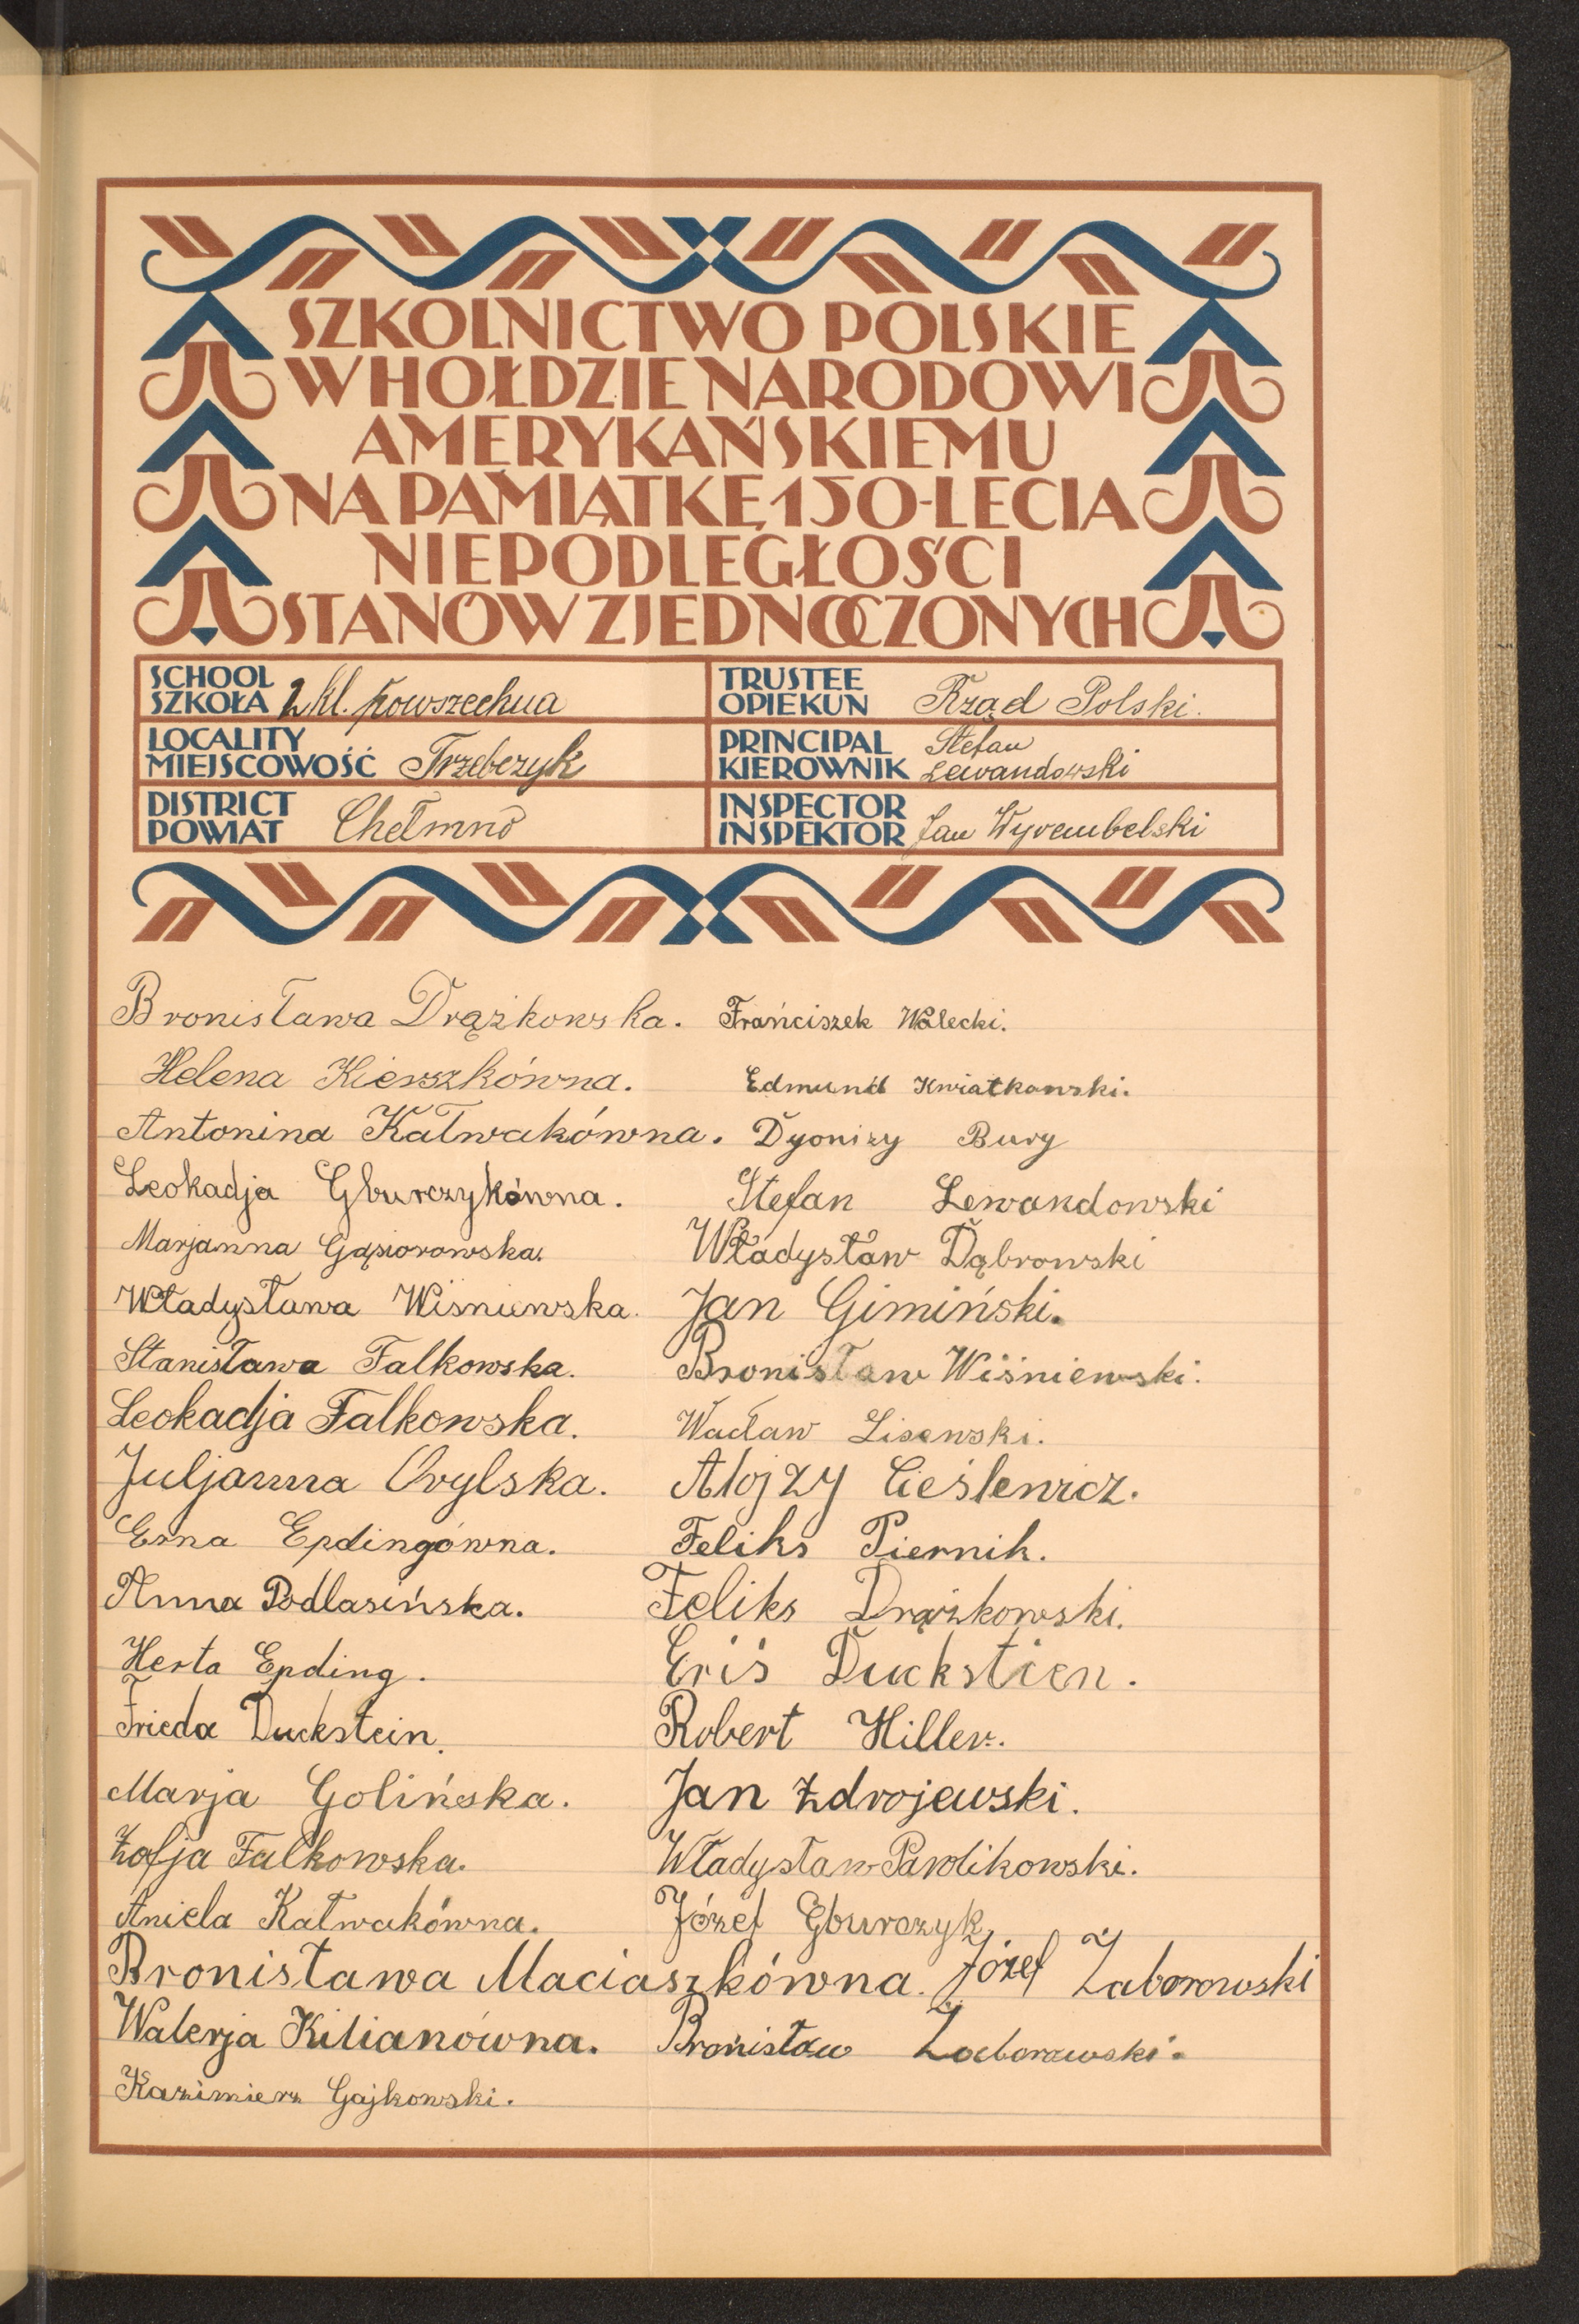 SZKOLNICTWO POLSKIE
W HOŁDZIE NARODOWI
AMERYKAŃSKIEMU
NA PAMIĄTKĘ 150-LECIA
NIEPODLEGŁOŚCI
STANÓW ZJEDNOCZONYCH
SCHOOL
SZKOŁA 2 kl. powszechna
TRUSTEE
OPIEKUN Rząd Polski.
LOCALITY
MIEJSCOWOŚĆ Trzebczyk
PRINCIPAL Stefan
KIEROWNIK Lewandowski
DISTRICT
POWIAT Chełmno
INSPECTOR
INSPEKTOR Jan Wyrembelski
Bronisława Drążkowska. Frańciszek Walecki.
Helena Kierszkówna. Edmund Kwiatkowski.
Antonina Kałwakówna. Dyonizy Bury
Leokadja Gburczykówna. Stefan Lewandowski
Marjanna Gąsiorowska. Władysław Dąbrowski
Władysława Wiśniewska. Jan Gimiński.
Stanisława Falkowska. Bronisław Wiśniewski.
Leokadja Falkowska. Wacław Lisewski.
Juljanna Orylska. Alojzy Cieślewicz.
Erna Epdingówna. Feliks Piernik.
Anna Podlasińska. Feliks Drążkowski.
Herta Epding. Eriś Duckstien.
Frieda Duckstein. Robert Hiller.
Marja Golińska. Jan Zdrojewski.
Zofja Falkowska. Władysław Pawlikowski.
Aniela Kałwakówna. Józef Gburczyk.
Bronisława Maciaszkówna. Józef Zaborowski
Walerja Kilianówna. Bronisław Zaborowski.
Kazimierz Gajkowski.